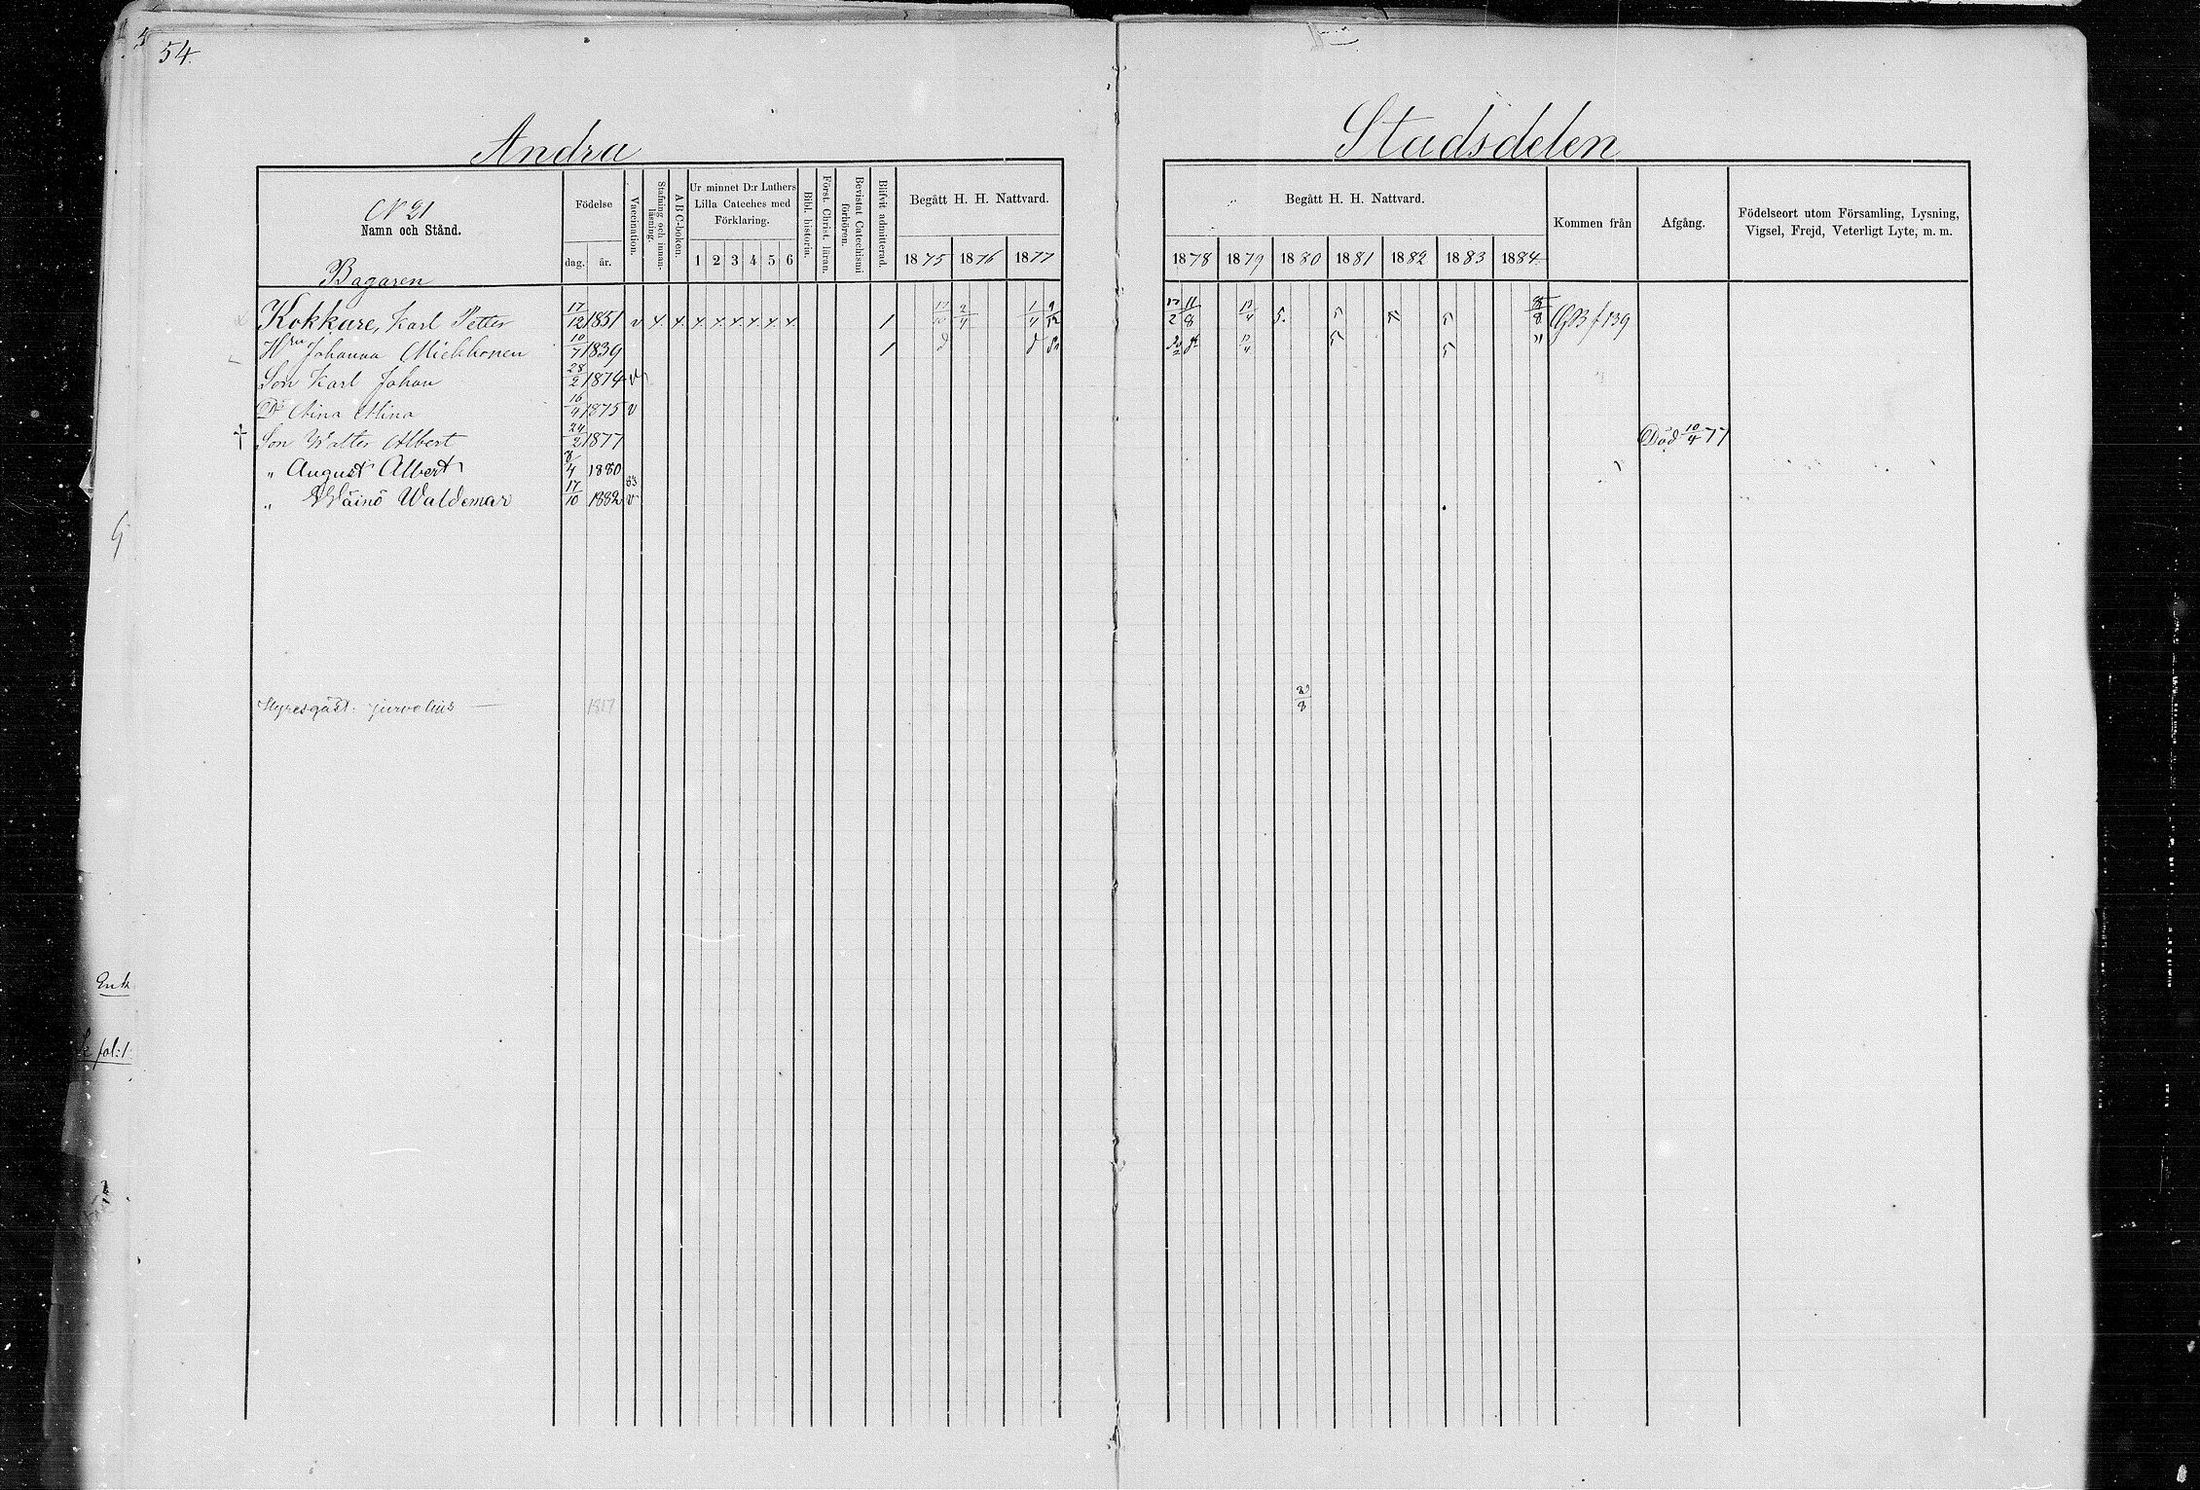 54.
Andra
Stadsdelen
N 21
Namn och Stånd.
Födelse
dag. år.
Vaccination.
Stafning och innanläsning.
A B C-boken.
Ur minnet D:r Luthers Lilla Cateches med Förklaring.
1 2 3 4 5 6
Bibl. historia.
Först. Christ. läran.
Bevistat Catechismi förhören.
Blifvit admitterad.
Begått H. H. Nattvard.
1875 1876 1877
Begått H. H. Nattvard.
1878 1879 1880 1881 1882 1883 1884
Kommen från
Afgång.
Födelseort utom Församling, Lysning, Vigsel, Frejd, Veterligt Lyte, m. m.
Bagaren
Kokkare, Karl Petter 17/12 1851 v x x x x x x x x 1 2/4 1/4 9/12 11/8 5. 5 5 GB f 139
Hru Johanna Miekkonen 10/7 1839 1 5 5
Son Karl Johan 28/2 1874 v
Dr Aina Mina 16/4 1875 v
† Son Walter Albert 24/2 1877 Död 10/4 77
" August Albert 8/4 1880
" Wäinö Waldemar 17/10 1882 83 v
Hyresgäst: 1857
fol: 1